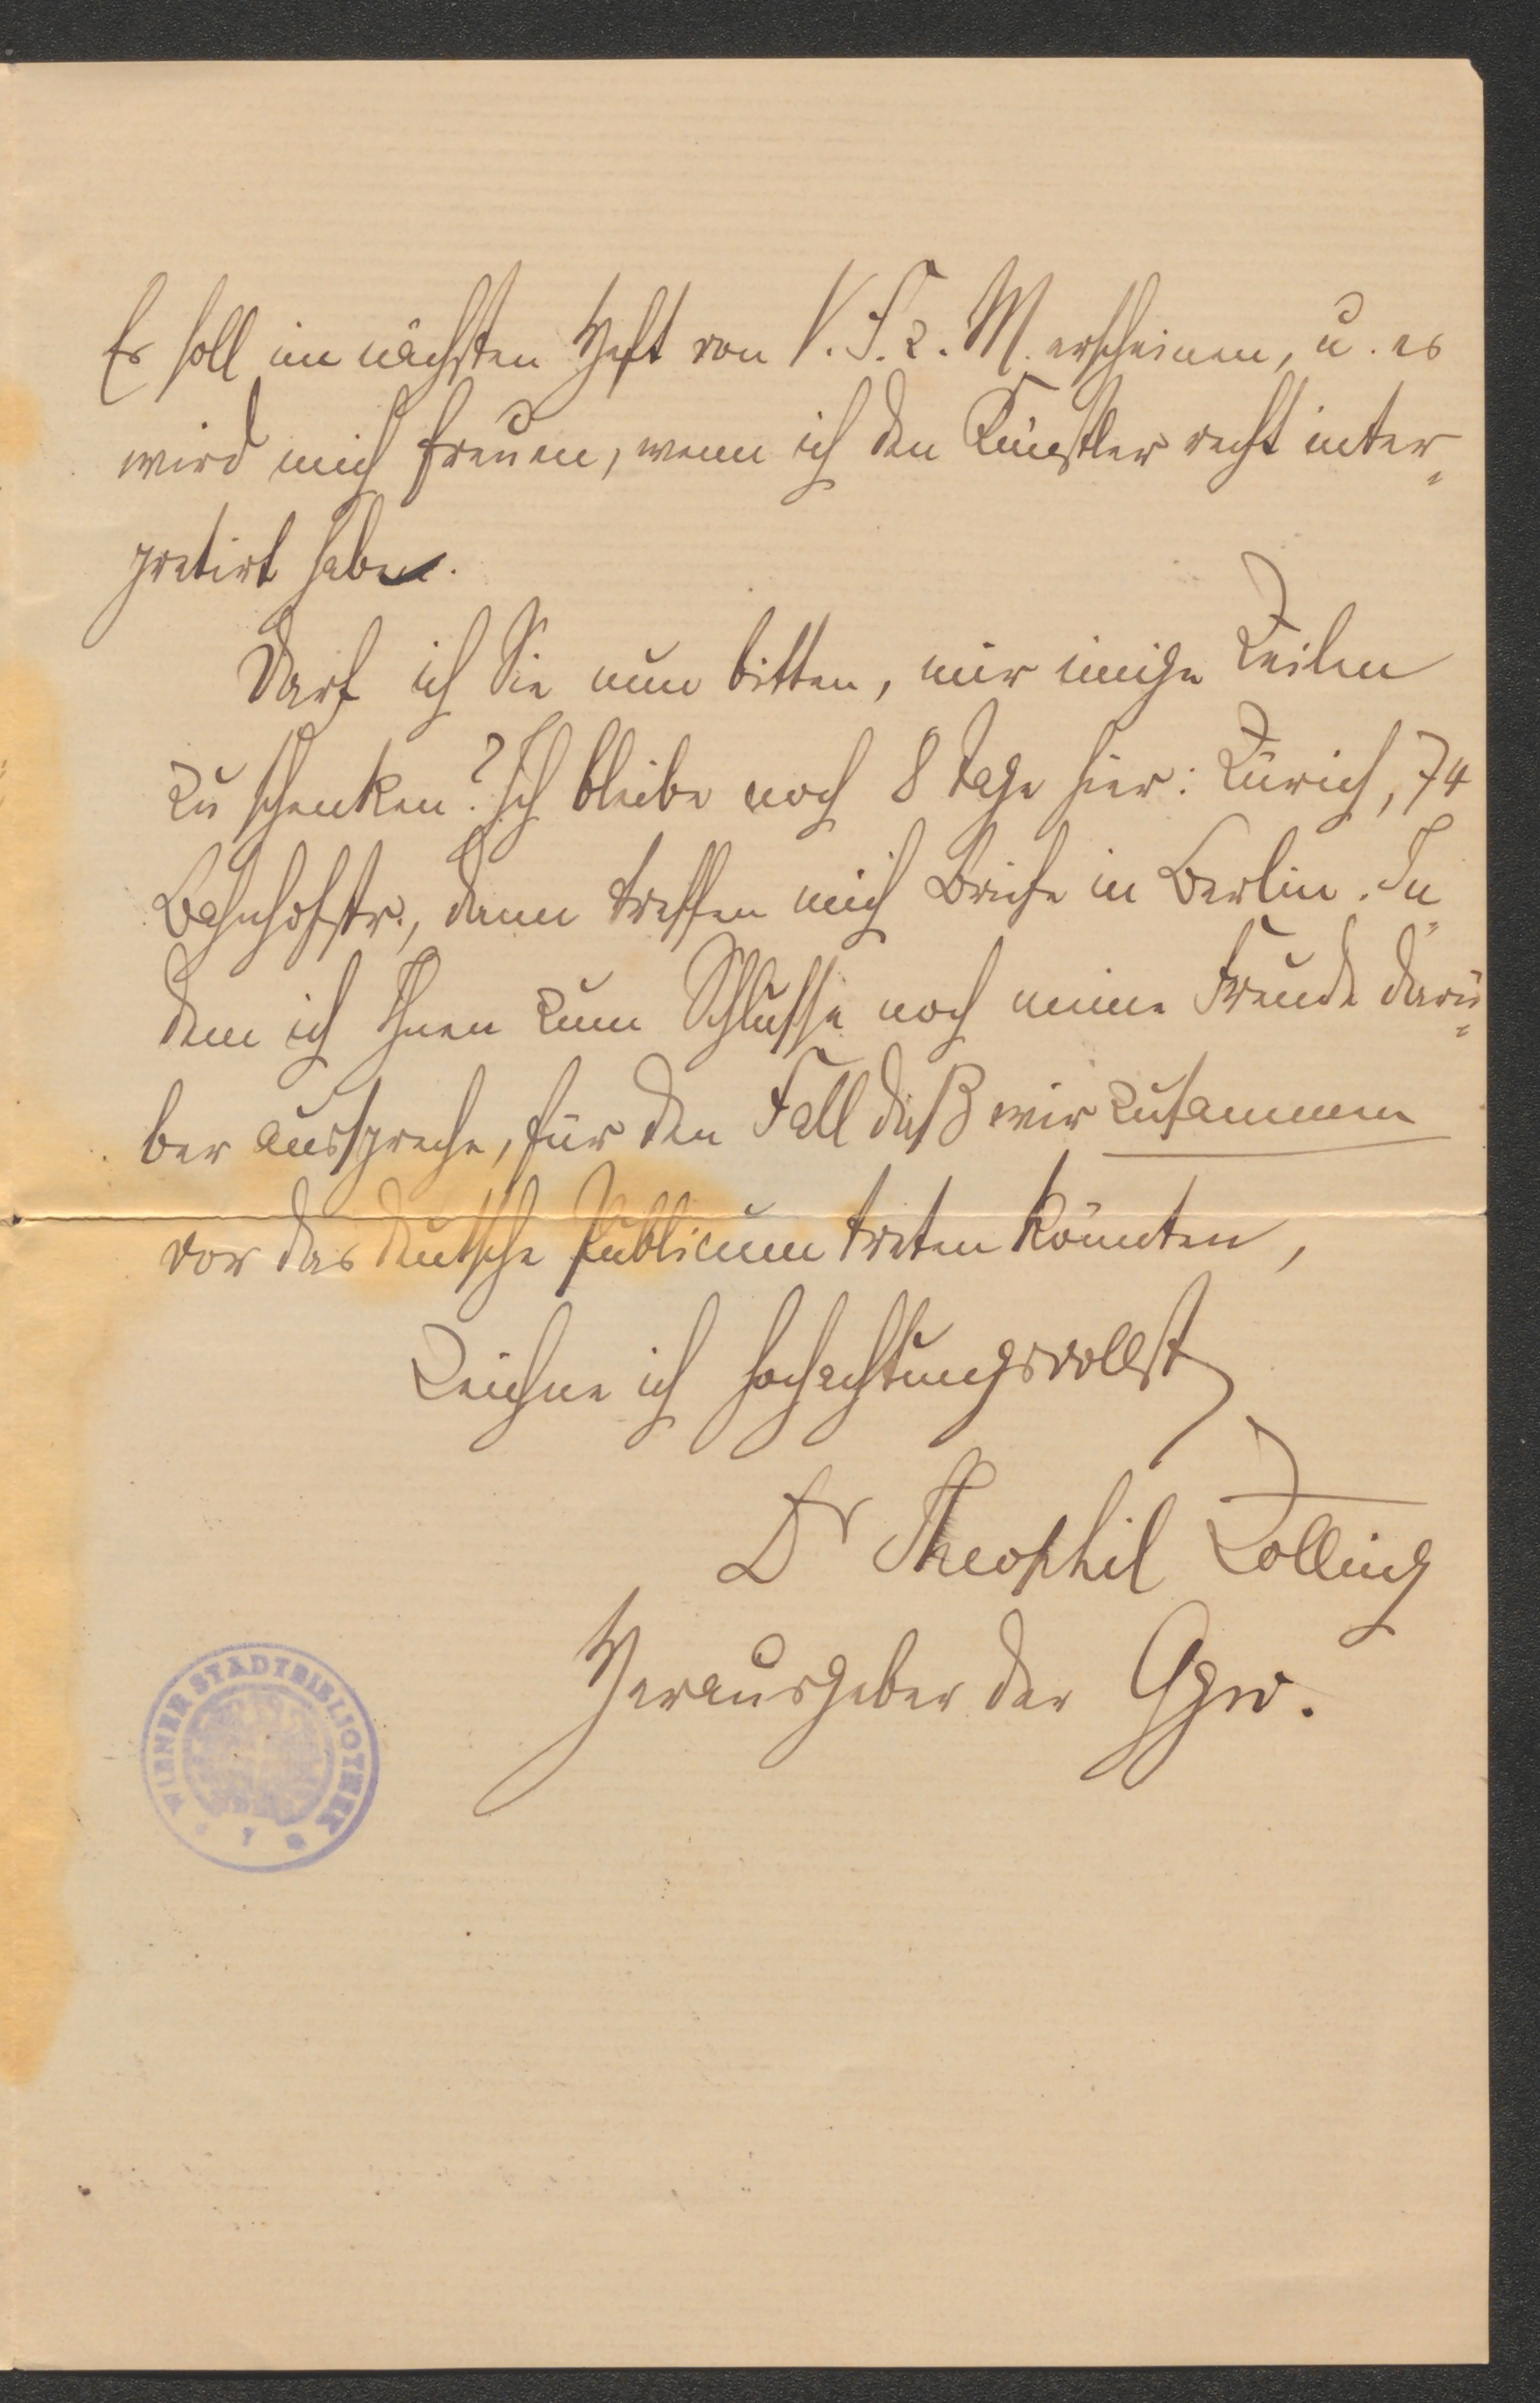 Es soll im nächsten Heft von V. F. z. M. erscheinen, u. es
wird mich freuen, wenn ich den Künstler recht inter-
pretirt habe.
Darf ich Sie nun bitten, mir einige Zeilen
zu schenken? Ich bleibe noch 8 Tage hier: Zürich, 74
Bahnhofstr., dann treffen mich Briefe in Berlin. In-
dem ich Ihnen zum Schlusse noch meine Freude darü-
ber ausspreche, für den Fall daß wir zusammen
vor das deutsche Publicum treten könnten,
Zeichne ich hochachtungsvollst
Dr Theophil Zolling
Herausgeber der Ggw.
WIENER STADTBIBLIOTHEK